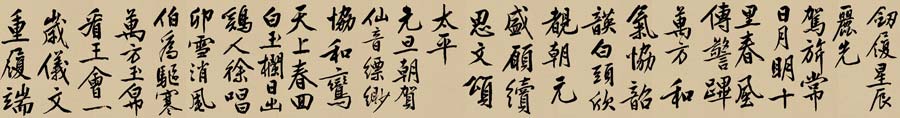 劍履星辰
麗先
駕旂常
日月明十
里春風
傳警蹕
萬方和
氣協韶
韺白頭欣
覩朝元
盛願續
思文頌
太平
元旦朝賀
仙音縹緲
協和鸞
天上春回
白玉欄日出
鷄人徐唱
卯雪消風
伯爲驅寒
萬方玉帛
看王會一
歲儀文
重履端